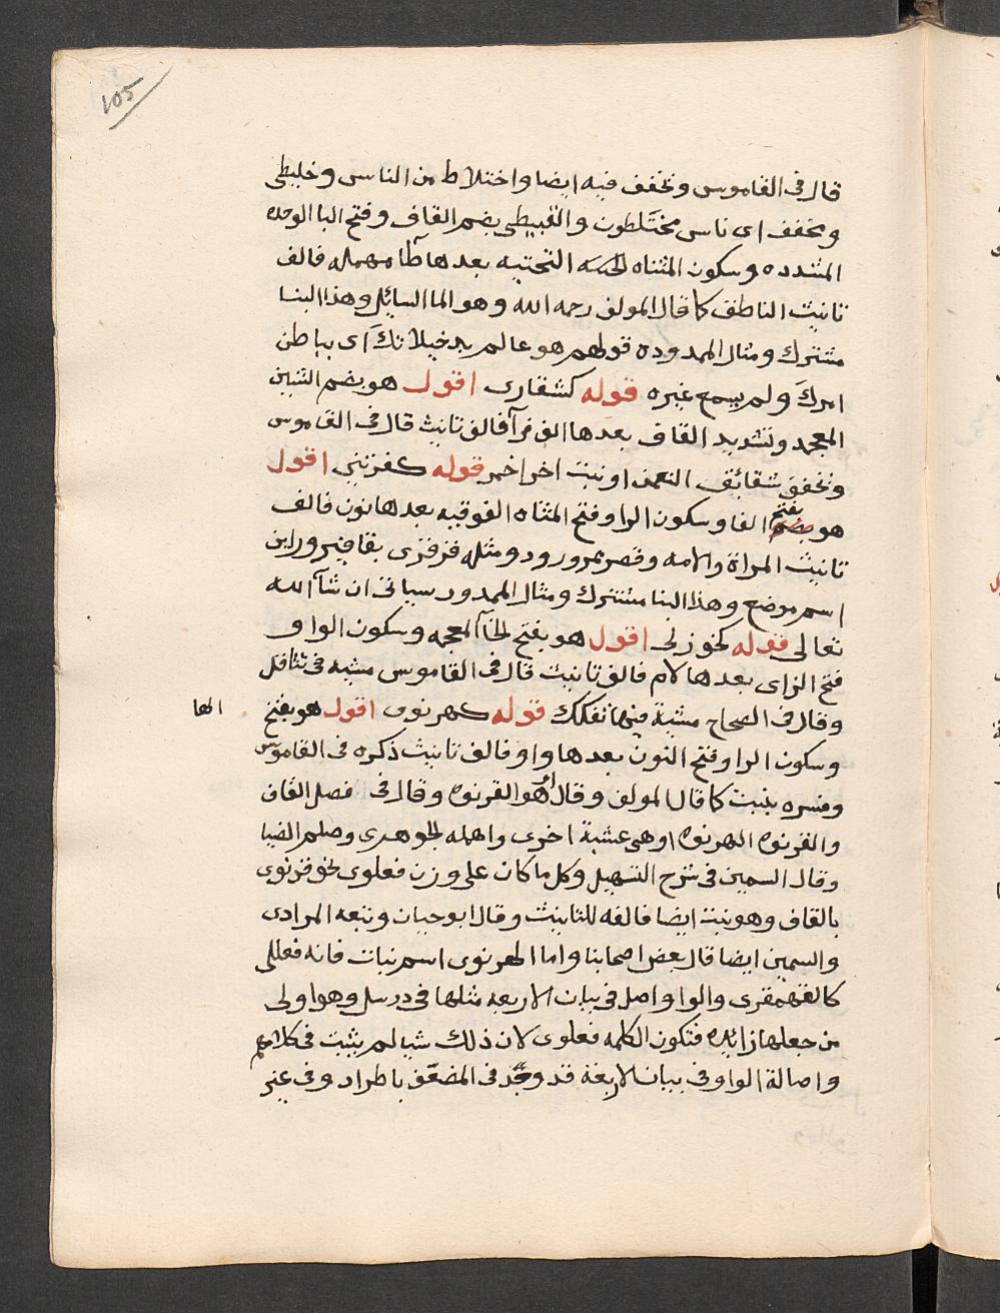 105
قال في القاموس وتخفف فيه ايضا واختلاط من الناس وخليطى
وتخفف اى ناس مختلطون والقبيطى بضم القاف وفتح البا الموحده
المشدده وسكون المثناه التحتيه بعدها طا مهمله فالف
تانيث الناطف كما قال المولف رحمه الله وهو الما السايل وهذا البنا
مشترك ومثال الممدوده قولهم هو عالم بدخيلائك اى بباطن
امرك ولم يسمع غيره قوله كشقارى اقول هو بضم الشين
المعجمه وتشديد القاف بعدها الف فرآ فالف تانيث قال في القاموس
وتخفف شقائق النعمن او نبت اخر احمر قوله كفرتنى اقول
هو بفتح الفا وسكون الرا وفتح المثناه الفوقيه بعدها نون فالف
تانيث المراة والامه وقصر بمرورود ومثله قرقرى بقافين وراين
اسم موضع وهذا البنا مشترك ومثال الممدود سياتى ان شآ الله
تعالى قوله كخوزلى اقول هو بفتح الخآ المعجمه وسكون الواو
فتح الزاى بعدها لام فالف تانيث قال في القاموس مشيه في تثاقل
وقال في الصحاح مشية فيها تفكك قوله كهرنوى اقول هو بفتح
الها
وسكون الرا وفتح النون بعدها واو فالف تانيث ذكره في القاموس
وفسره بنبت كما قال المولف وقال او هو القرنوه وقال في فصل القاف
والقرنوه الهرنوه او هى عشبة اخرى واهمله الجوهرى وصلم الضيا
وقال السمين في شرح التسهيل وكل ما كان على وزن فعلوى نحو قرنوى
بالقاف وهو نبت ايضا فالفه للتانيث وقال ابو حيان وتبعه المرادى
والسمين ايضا قال بعض اصحابنا واما الهرنوى اسم نبات فانه فعللى
كالقهمقرى والواو اصل في بنات الاربعه مثلها في ورنتل وهو اولى
من جعلها زائده فتكون الكلمه فعلوى لان ذلك شيا لم يثبت في كلامهم
واصالة الواو في بنات الاربعة قد وجد في المضعف باطراد وفى غير